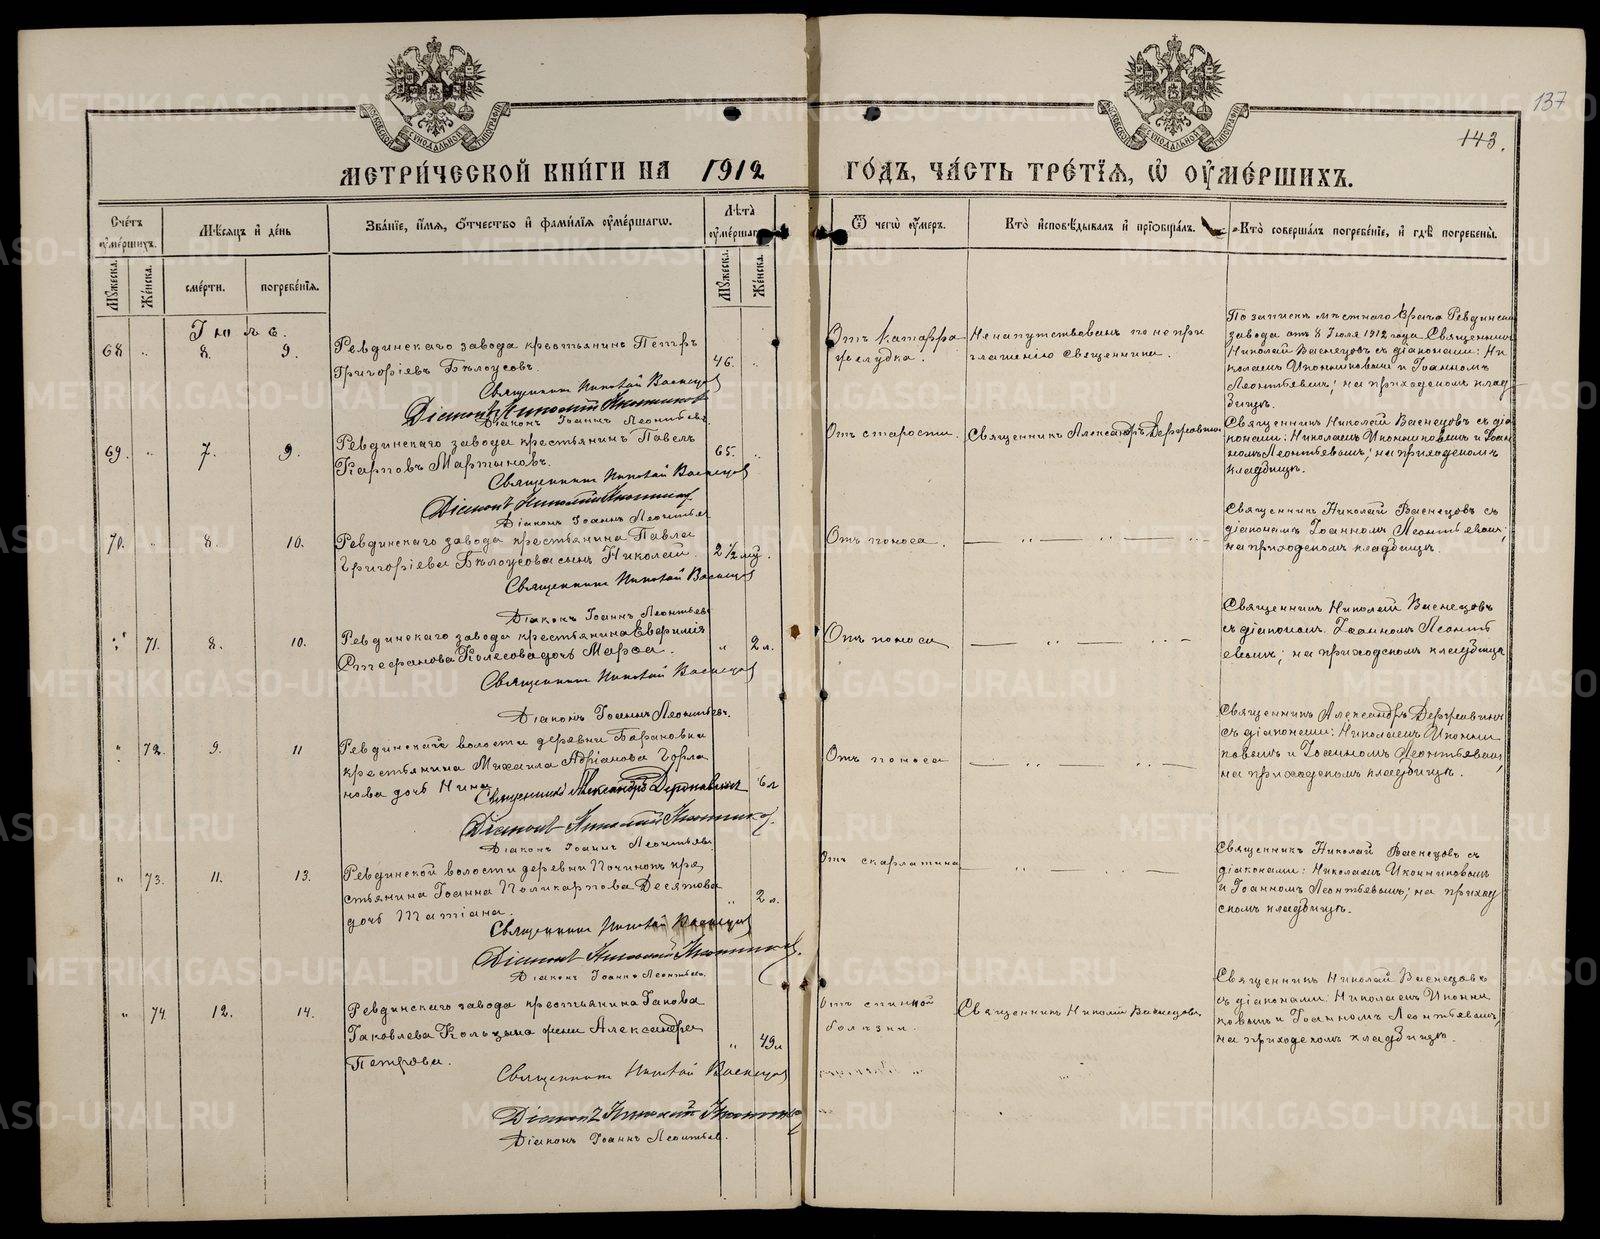 137
143.
МЕТРИ́ЧЕСКОЙ КНИ́ГИ НА 1912 ГО́ДЪ, ЧА́СТЬ ТРЕ́ТІѦ, Ѡ҆ ОУ҆МЕ́РШИХЪ.
Сче́тъ оу҆ме́ршихъ.
Мѣ́сяцъ и҆ де́нь
Зва́ніе, и҆́мя, ѻ҆́тчество и҆ фами́лія оу҆ме́ршагѡ.
Лѣ́та оу҆ме́ршагѡ
Ѿ чегѡ̀ оу҆́меръ.
Кто̀ и҆сповѣ́дывалъ и҆ пріѡбща́лъ.
Кто̀ соверша́лъ погребе́ніе, и҆ гдѣ̀ погребены̀.
Мꙋ́жеска.
Же́нска.
сме́рти.
погребе́нія.
Мꙋ́жеска.
Же́нска.
Іюль.
68 " 8. 9.
Ревдинскаго завода крестьянинъ Петръ
Григоріевъ Бѣлоусовъ.
46. "
Священникъ Николай Васнецовъ
Діаконъ Николай Иконниковъ
Діаконъ Іоаннъ Леонтьевъ
Отъ катарра
желудка.
Ненапутствованъ по непри
глашенію священника.
По запискѣ мѣстнаго врача Ревдинскаго
завода отъ 8 Іюля 1912 года Священникъ
Николай Васнецовъ съ діаконами: Ни
колаемъ Иконниковымъ и Іоанномъ
Леонтьевымъ; на приходскомъ клад
бищѣ.
69. " 7. 9.
Ревдинскаго завода крестьянинъ Павелъ
Карповъ Мартыновъ.
65. "
Священникъ Николай Васнецовъ
Діаконъ Николай Иконниковъ
Діаконъ Іоаннъ Леонтьевъ
Отъ старости.
Священникъ Александръ Державинъ
Священникъ Николай Васнецовъ съ діа
конами: Николаемъ Иконниковымъ и Іоан
номъ Леонтьевымъ; на приходскомъ
кладбищѣ.
70. " 8. 10.
Ревдинскаго завода крестьянина Павла
Григоріева Бѣлоусова сынъ Николай.
2 1/2
Священникъ Николай Васнецовъ
Діаконъ Іоаннъ Леонтьевъ
Отъ поноса.
— " — " — "
Священникъ Николай Васнецовъ съ
діакономъ Іоанномъ Леонтьевымъ;
на приходскомъ кладбищѣ.
" 71. 8. 10.
Ревдинскаго завода крестьянина Евфимія
Стефанова Колесова дочь Марѳа.
" 2 л.
Священникъ Николай Васнецовъ
Діаконъ Іоаннъ Леонтьевъ.
Отъ поноса
— " — " —
Священникъ Николай Васнецовъ
съ діакономъ Іоанномъ Леонть
евымъ; на приходскомъ кладбищѣ
" 72. 9. 11
Ревдинской волости деревни Барановки
крестьянина Михаила Адріанова Горла
нова дочь Нина
6 л
Священникъ Александръ Державинъ
Діаконъ Николай Иконниковъ
Діаконъ Іоаннъ Леонтьевъ
Отъ поноса
— " — " —
Священникъ Александръ Державинъ
съ діаконами: Николаемъ Иконни
ковымъ и Іоанномъ Леонтьевымъ,
на приходскомъ кладбищѣ.
" 73. 11. 13.
Ревдинской волости деревни Починокъ кре
стьянина Іоанна Поликарпова Десятова
дочь Татіана.
" 2 л.
Священникъ Николай Васнецовъ
Діаконъ Николай Иконниковъ
Діаконъ Іоаннъ Леонтьевъ.
Отъ скарлатина
— " — " —
Священникъ Николай Васнецовъ съ
діаконами: Николаемъ Иконниковымъ
и Іоанномъ Леонтьевымъ; на приход
скомъ кладбищѣ.
" 74. 12. 14.
Ревдинскаго завода крестьянина Іакова
Іаковлева Кольцова жена Александра
Петрова.
" 49 л
Священникъ Николай Васнецовъ
Діаконъ Николай Иконниковъ
Діаконъ Іоаннъ Леонтьевъ.
Отъ спинной
болѣзни.
Священникъ Николай Васнецовъ
Священникъ Николай Васнецовъ
съ діаконами: Николаемъ Иконни
ковымъ и Іоанномъ Леонтьевымъ,
на приходскомъ кладбищѣ.
METRIKI.GASO-URAL.RU